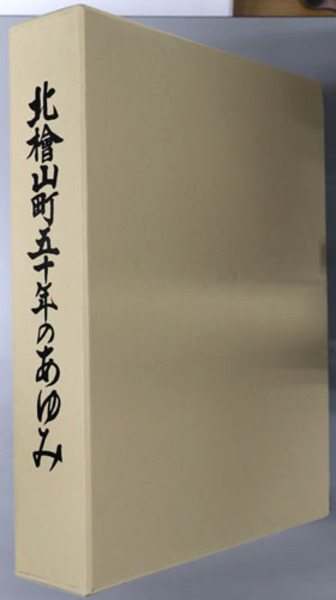 北檜山町五十年のあゆみ